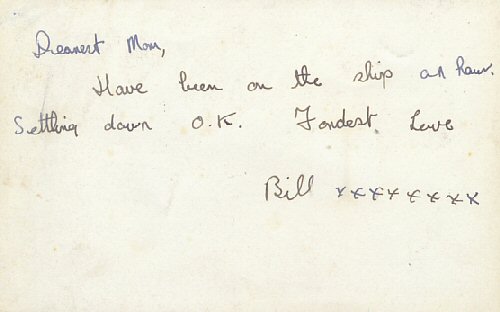 Dearest Mom,
Have been on the ship an hour.
Settling down O.K. Fondest Love
Bill xxxxxxxx